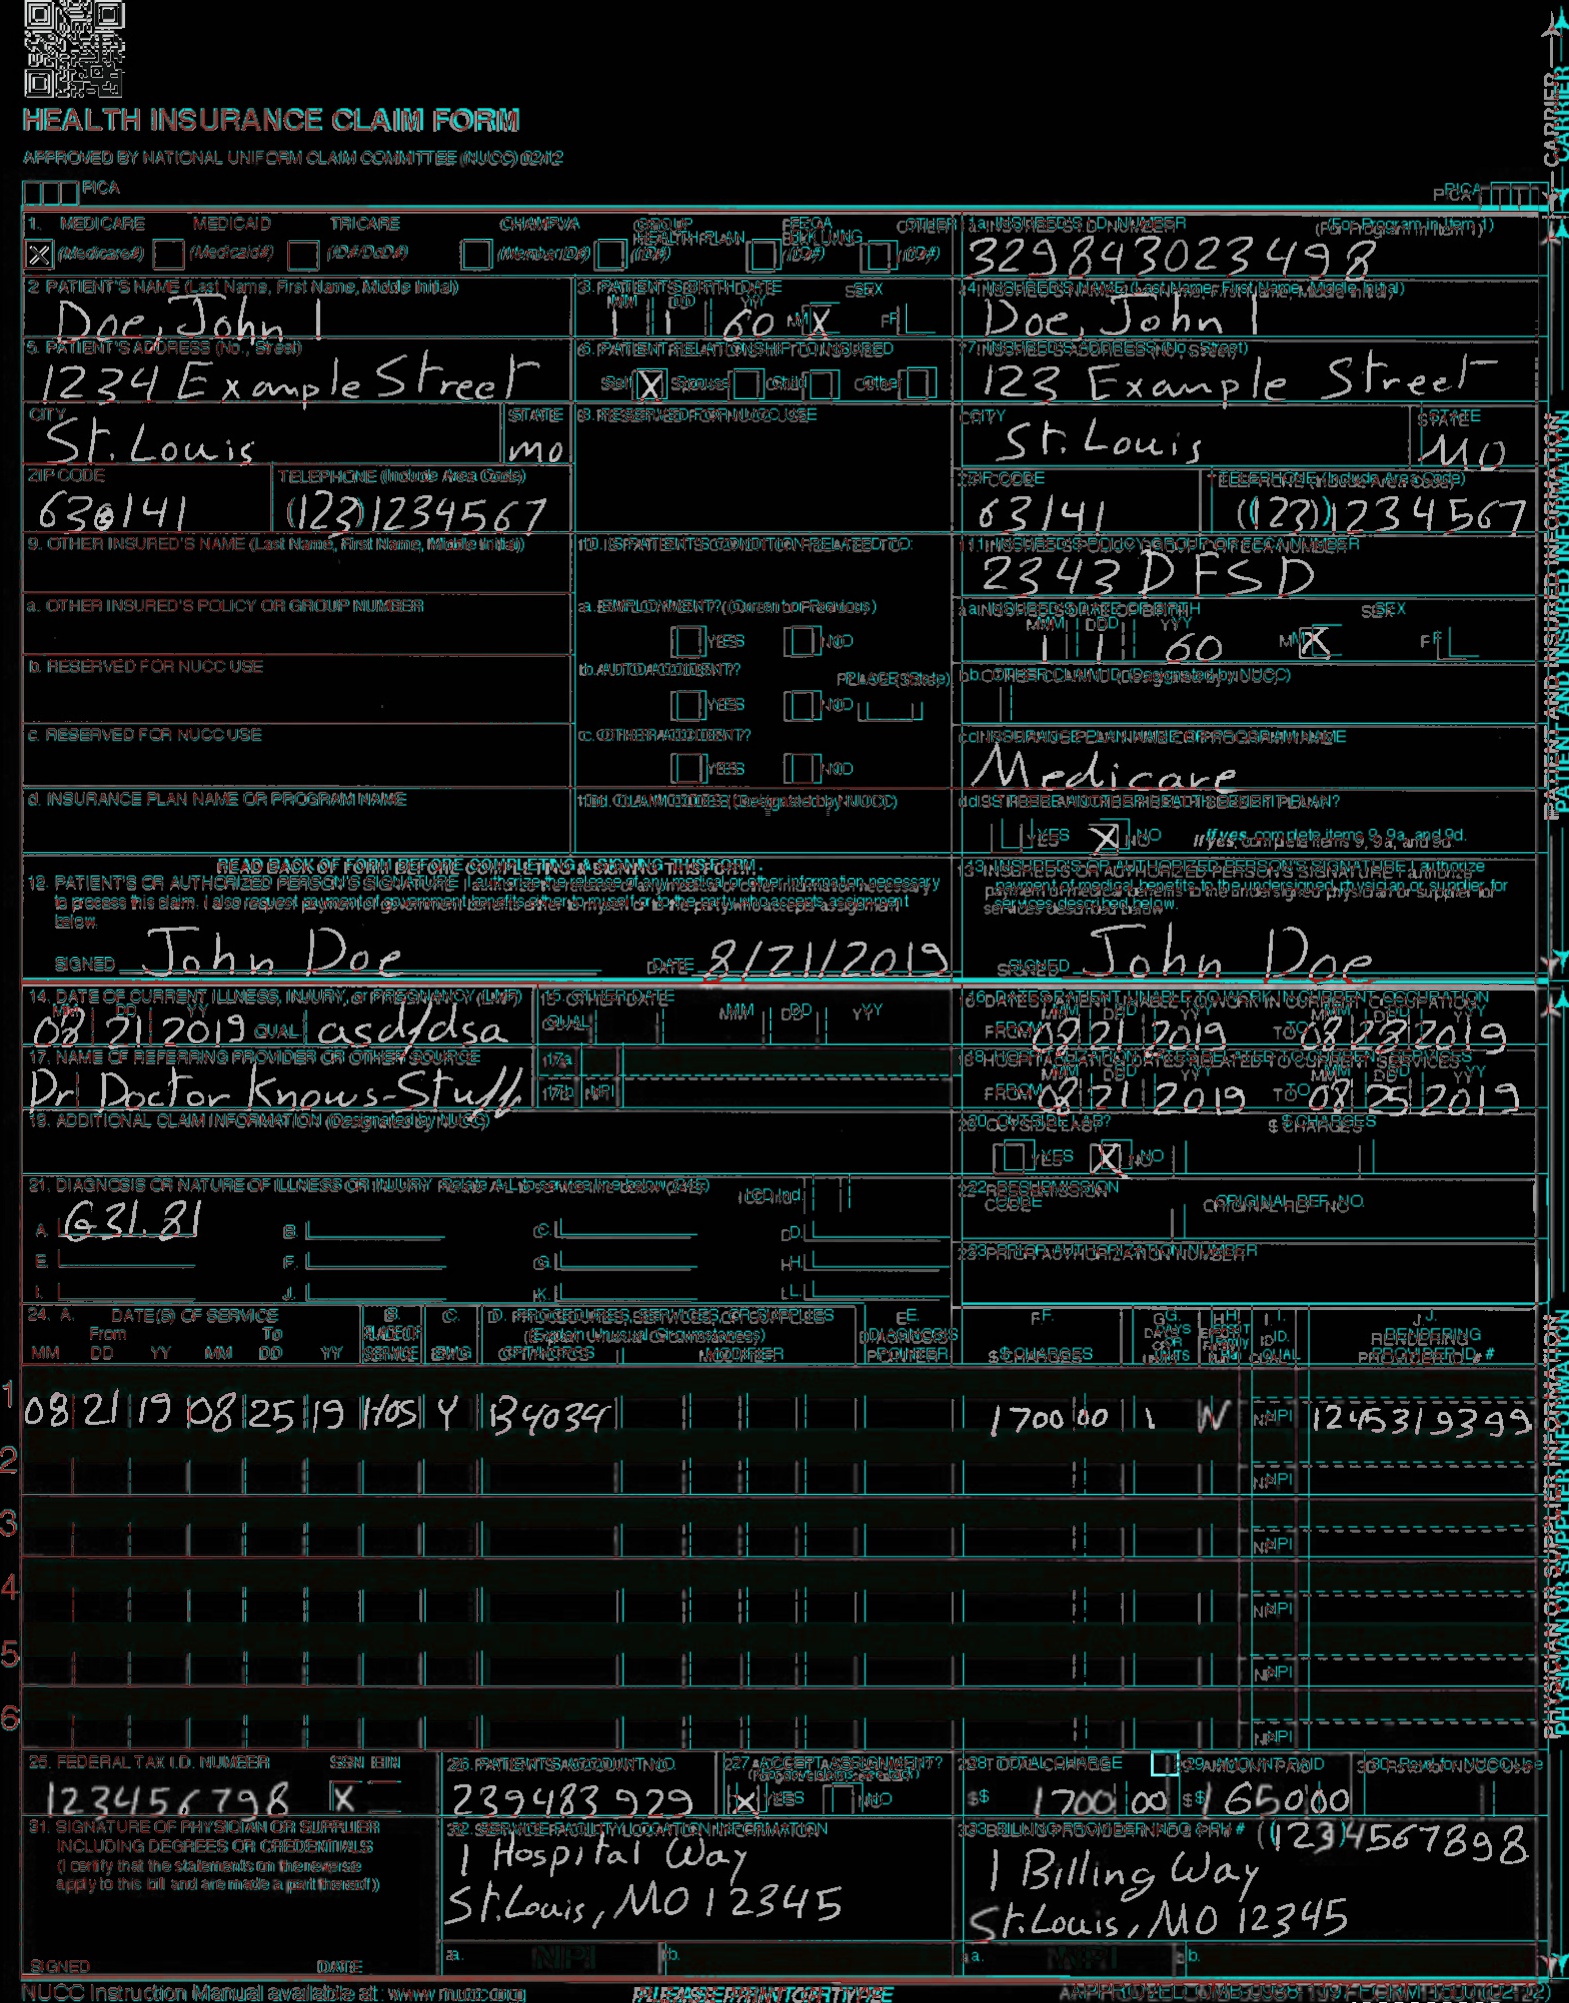 HEALTH INSURANCE CLAIM FORM
APPROVED BY NATIONAL UNIFORM CLAIM COMMITTEE (NUCC) 02/12
PICA PICA
CARRIER
1. MEDICARE MEDICAID TRICARE CHAMPVA GROUP HEALTH PLAN FECA BLK LUNG OTHER
X (Medicare#) (Medicaid#) (ID#/DoD#) (Member ID#) (ID#) (ID#) (ID#)
1a. INSURED'S I.D. NUMBER (For Program in Item 1)
329843023498
2. PATIENT'S NAME (Last Name, First Name, Middle Initial)
Doe, John I
3. PATIENT'S BIRTH DATE SEX
MM DD YY
1 1 60 M X F
4. INSURED'S NAME (Last Name, First Name, Middle Initial)
Doe, John I
5. PATIENT'S ADDRESS (No., Street)
1234 Example Street
6. PATIENT RELATIONSHIP TO INSURED
Self X Spouse Child Other
7. INSURED'S ADDRESS (No., Street)
123 Example Street
CITY STATE
St. Louis MO
8. RESERVED FOR NUCC USE
CITY STATE
St. Louis MO
ZIP CODE TELEPHONE (Include Area Code)
630141 (123) 1234567
ZIP CODE TELEPHONE (Include Area Code)
63141 (123) 1234567
9. OTHER INSURED'S NAME (Last Name, First Name, Middle Initial)
10. IS PATIENT'S CONDITION RELATED TO:
11. INSURED'S POLICY GROUP OR FECA NUMBER
2343DFSD
a. OTHER INSURED'S POLICY OR GROUP NUMBER
a. EMPLOYMENT? (Current or Previous)
YES NO
a. INSURED'S DATE OF BIRTH SEX
MM DD YY
1 1 60 M X F
b. RESERVED FOR NUCC USE
b. AUTO ACCIDENT? PLACE (State)
YES NO
b. OTHER CLAIM ID (Designated by NUCC)
c. RESERVED FOR NUCC USE
c. OTHER ACCIDENT?
YES NO
c. INSURANCE PLAN NAME OR PROGRAM NAME
Medicare
d. INSURANCE PLAN NAME OR PROGRAM NAME
10d. CLAIM CODES (Designated by NUCC)
d. IS THERE ANOTHER HEALTH BENEFIT PLAN?
YES X NO If yes, complete items 9, 9a, and 9d.
PATIENT AND INSURED INFORMATION
READ BACK OF FORM BEFORE COMPLETING & SIGNING THIS FORM.
12. PATIENT'S OR AUTHORIZED PERSON'S SIGNATURE I authorize the release of any medical or other information necessary
to process this claim. I also request payment of government benefits either to myself or to the party who accepts assignment
below.
SIGNED John Doe DATE 8/21/2019
13. INSURED'S OR AUTHORIZED PERSON'S SIGNATURE I authorize
payment of medical benefits to the undersigned physician or supplier for
services described below.
SIGNED John Doe
14. DATE OF CURRENT ILLNESS, INJURY, or PREGNANCY (LMP)
MM DD YY
08 21 2019 QUAL asdfdsa
15. OTHER DATE
QUAL MM DD YY
16. DATES PATIENT UNABLE TO WORK IN CURRENT OCCUPATION
MM DD YY MM DD YY
FROM 08 21 2019 TO 08 28 2019
17. NAME OF REFERRING PROVIDER OR OTHER SOURCE
Dr Doctor Knows-Stuff
17a.
17b. NPI
18. HOSPITALIZATION DATES RELATED TO CURRENT SERVICES
MM DD YY MM DD YY
FROM 08 21 2019 TO 08 25 2019
19. ADDITIONAL CLAIM INFORMATION (Designated by NUCC)
20. OUTSIDE LAB? $ CHARGES
YES X NO
21. DIAGNOSIS OR NATURE OF ILLNESS OR INJURY Relate A-L to service line below (24E) ICD Ind.
A. G31.81 B. C. D.
E. F. G. H.
I. J. K. L.
22. RESUBMISSION CODE ORIGINAL REF. NO.
23. PRIOR AUTHORIZATION NUMBER
24. A. DATE(S) OF SERVICE B. C. D. PROCEDURES, SERVICES, OR SUPPLIES E. F. G. H. I. J.
From To PLACE OF (Explain Unusual Circumstances) DIAGNOSIS DAYS OR ID. RENDERING
MM DD YY MM DD YY SERVICE EMG CPT/HCPCS MODIFIER POINTER $ CHARGES UNITS QUAL. PROVIDER ID. #
1 08 21 19 08 25 19 HOS Y B4034 1700 00 1 N NPI 1245319399
2 NPI
3 NPI
4 NPI
5 NPI
6 NPI
PHYSICIAN OR SUPPLIER INFORMATION
25. FEDERAL TAX I.D. NUMBER SSN EIN
123456798 X
26. PATIENT'S ACCOUNT NO.
239483929
27. ACCEPT ASSIGNMENT?
(For govt. claims, see back)
X YES NO
28. TOTAL CHARGE
$ 1700 00
29. AMOUNT PAID
$ 1650 00
30. Rsvd for NUCC Use
31. SIGNATURE OF PHYSICIAN OR SUPPLIER
INCLUDING DEGREES OR CREDENTIALS
(I certify that the statements on the reverse
apply to this bill and are made a part thereof.)
SIGNED DATE
32. SERVICE FACILITY LOCATION INFORMATION
1 Hospital Way
St. Louis, MO 12345
a. NPI b.
33. BILLING PROVIDER INFO & PH # (123) 4567898
1 Billing Way
St. Louis, MO 12345
a. NPI b.
NUCC Instruction Manual available at: www.nucc.org PLEASE PRINT OR TYPE APPROVED OMB-0938-1197 FORM 1500 (02-12)